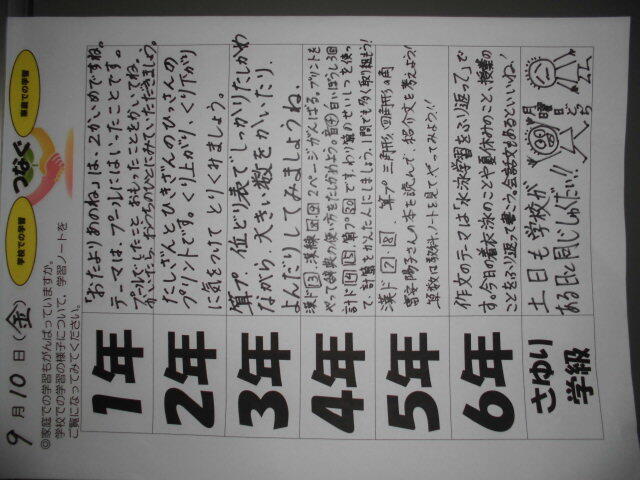 9月10日(金)
学校での学習
つなぐ
家庭での学習
◎家庭での学習もがんばっていますか。
学校での学習の様子について、学習ノートを
ご覧になってみてください。
1年
「おたよりあのね」は、2かいめですね。
テーマは、プールにはいったことです。
プールでしたこと、おもったことをかいてね。
かいたら、おうちのひとにみていただきましょう。
2年
たしざんとひきざんのひっさんの
プリントです。くり上がり、くり下がり
に気をつけて とりくみましょう。
3年
算プ、位どり表でしっかりたしかめ
ながら、大きい数をかいたり、
よんだりしてみましょうね。
4年
2ページがんばる。プリントを
やって辞典の使い方をたしかめよう。
計ド
わり算のせいしつを使っ
て、計算をかんたんにしましょう。1問でも多く取り組もう!
5年
漢ド 2・8 算プ 三角形、四角形の角
富安陽子さんの本を読んで、紹介文を考えよう!
算数は教科、ノートを見てやってみよう!!
6年
作文のテーマは「水泳学習をふり返って」で
す。今日の着水泳のことや夏休みのこと、授業の
ことをふり返って書こう。会話文もあるといいね!
さゆり
学級
土日も学校が
ある日と同じしゅくだい!!
土
月
曜
日
どち